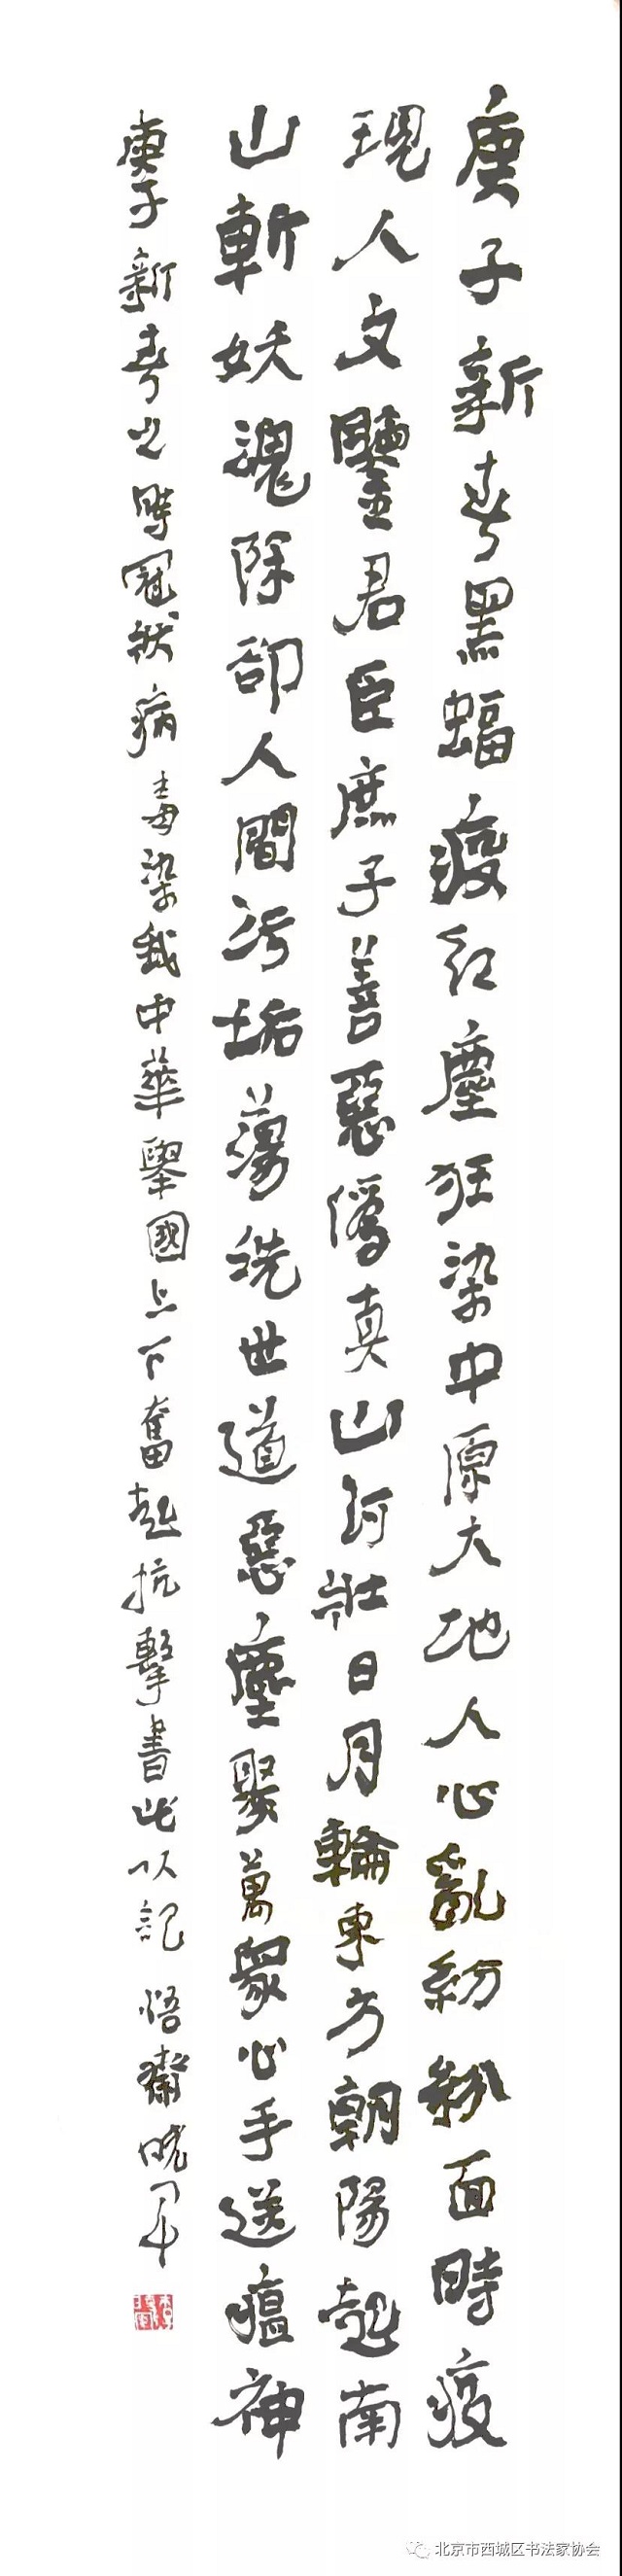 庚子新春黑蝠疫紅塵狂染中原大地人心亂紛紛面時疫
現人文鑒君臣庶子善惡偽真山河壯日月輪東方朝陽起南
山斬妖魂除卻人間污垢蕩洗世道惡塵聚萬眾心手送瘟神
庚子新春之時冠狀病毒染我中華舉國上下奮起抗擊書此以記 悟齋曉軍
北京市西城区书法家协会